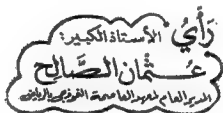 رَأْيُ الأستاذ الكبير:
عُثْمَان الصَّالِح
المدير العام لمعهد العاصمة النموذجي بالرياض